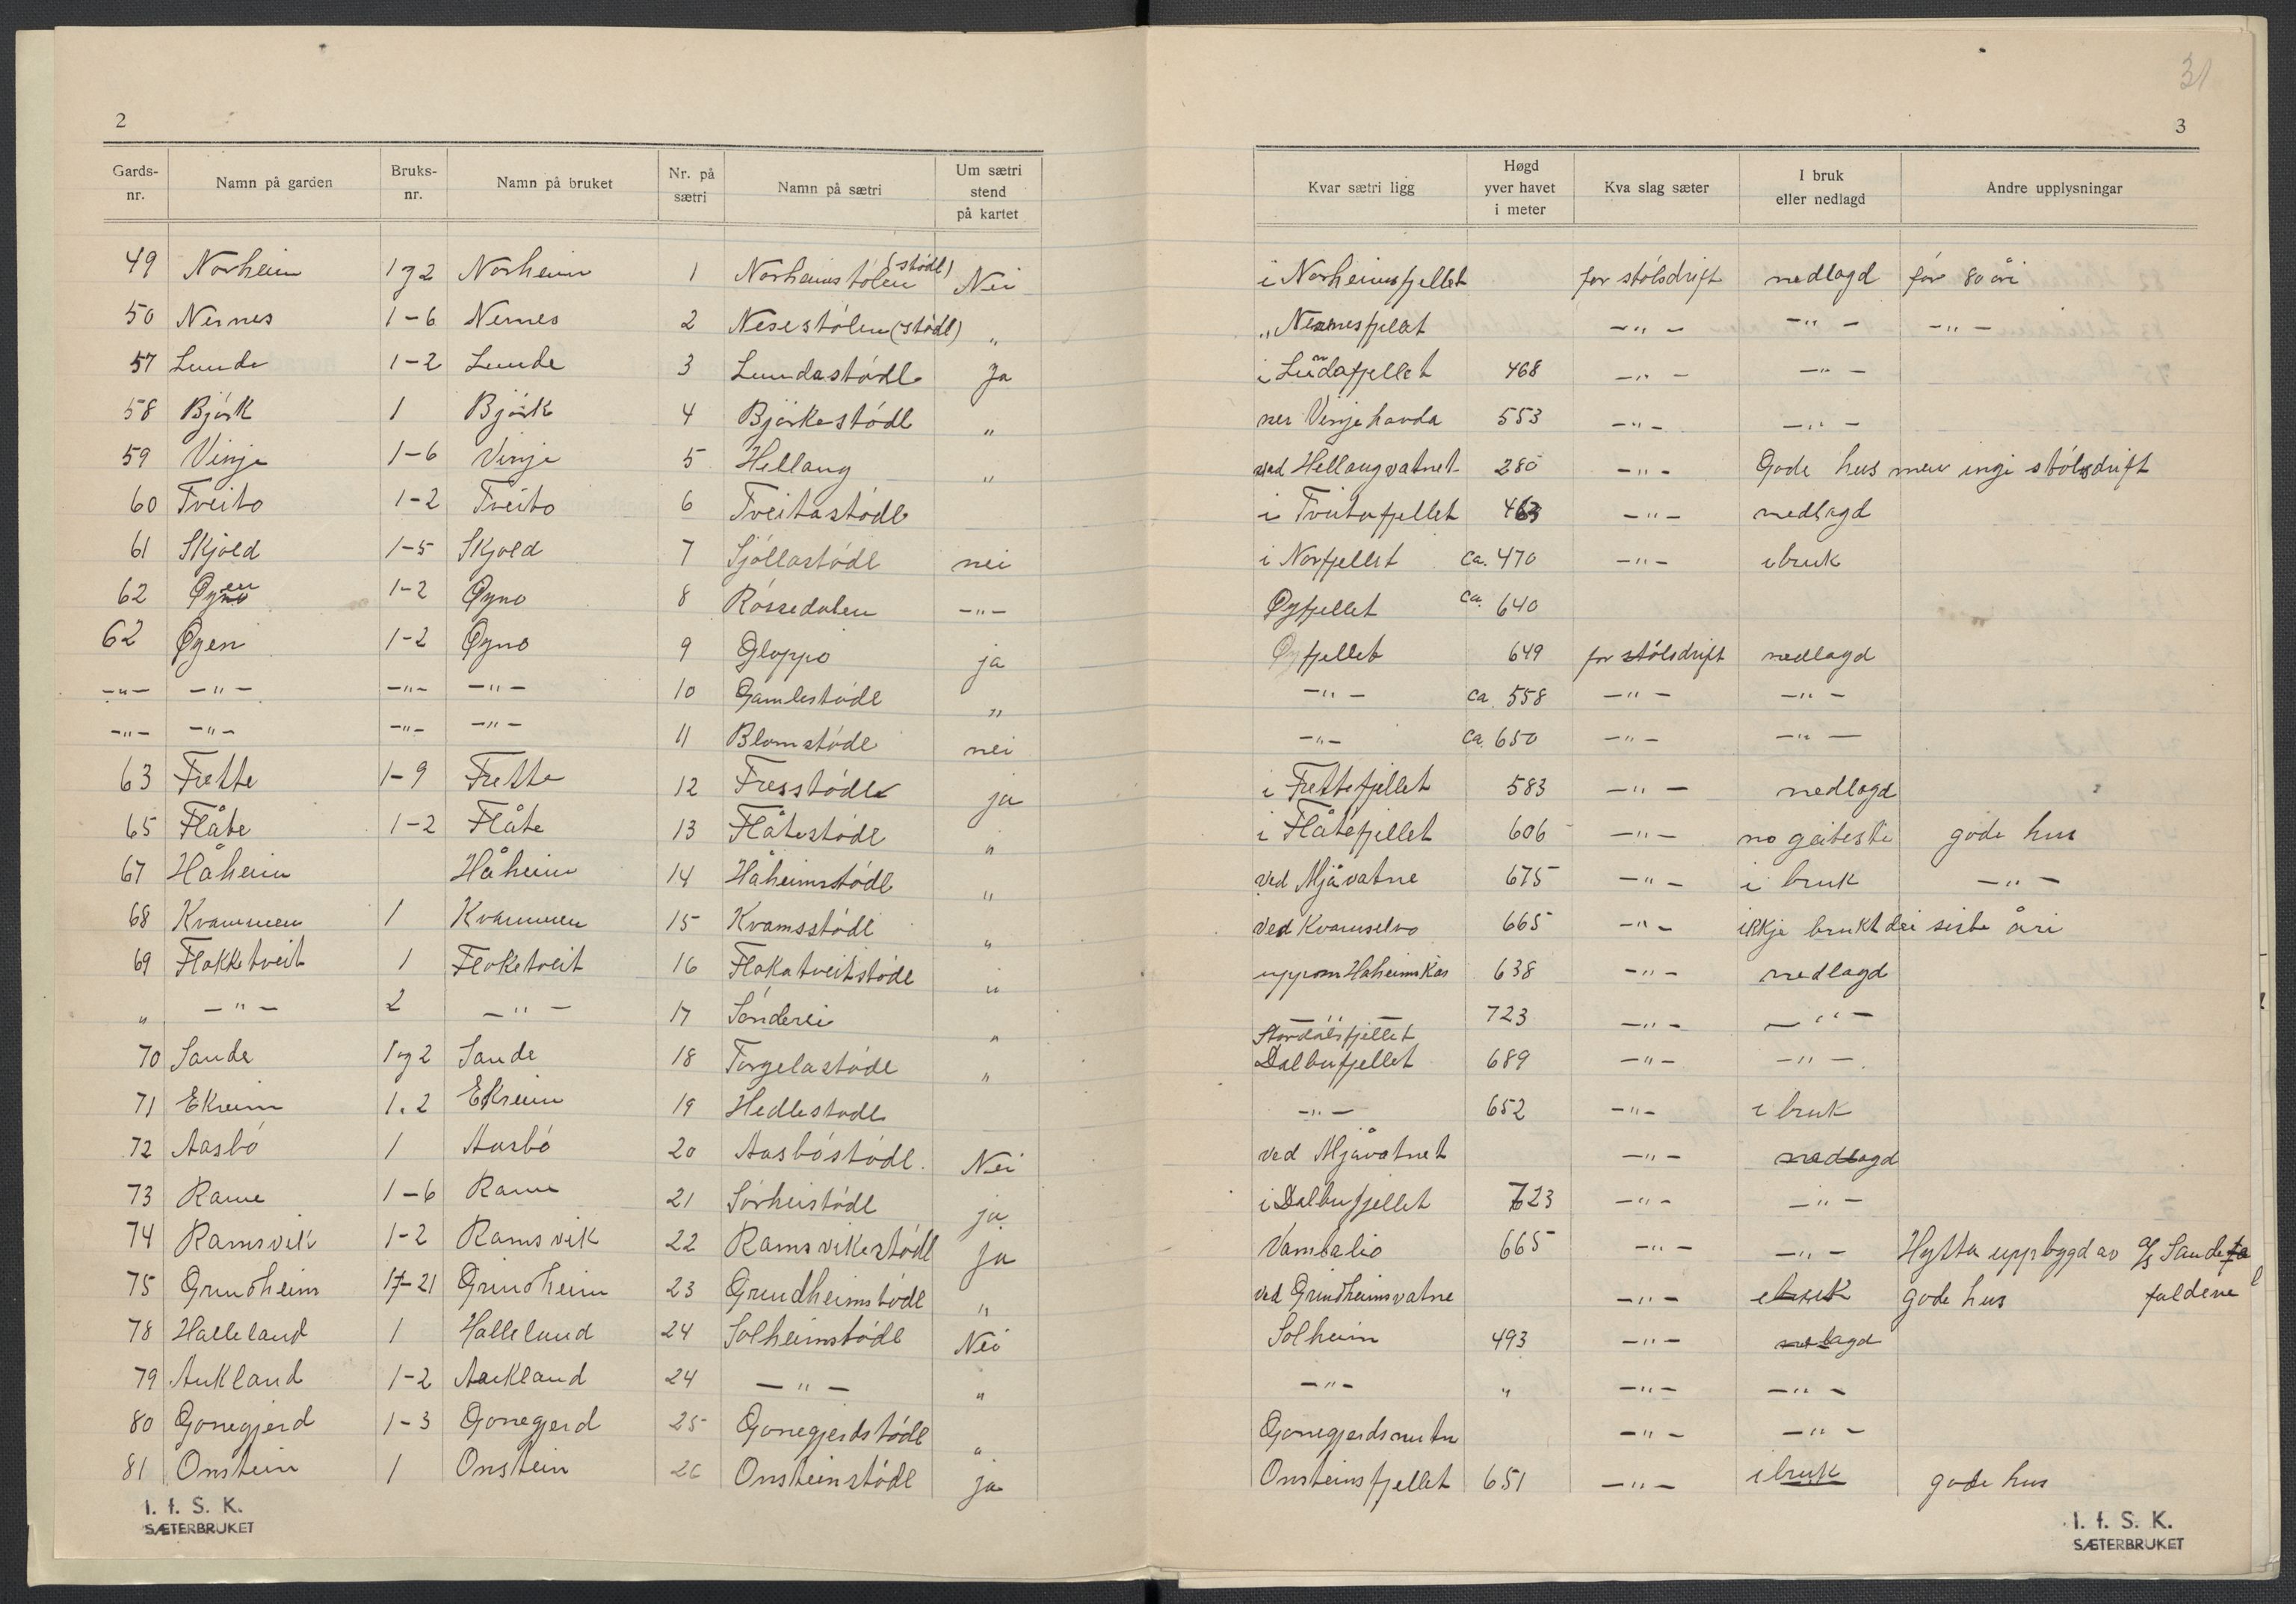 31
2
3
Gards-nr. | Namn på garden | Bruks-nr. | Namn på bruket | Nr. på sætri | Namn på sætri | Um sætri stend på kartet | Kvar sætri ligg | Høgd yver havet i meter | Kva slag sæter | I bruk eller nedlagd | Andre upplysningar
49 | Norheim | 1 og 2 | Norheim | 1 | Norheimstølen (stødl) | Nei | i Norheimsfjellet | | for stølsdrift | nedlagd | for 80 åri
50 | Nernes | 1-6 | Nernes | 2 | Nesestølen (stødl) | " | " Nernesfjellet | | -"- | -"- | -"-
57 | Lunde | 1-2 | Lunde | 3 | Lundastødl | Ja | i Lundafjellet | 468 | -"- | -"- |
58 | Bjørk | 1 | Bjørk | 4 | Bjørkestødl | " | ner Vinjehovda | 553 | -"- | -"- |
59 | Vinje | 1-6 | Vinje | 5 | Hellaug | " | ved Hellaugvatnet | 280 | -"- | Gode hus men ingi stølsdrift
60 | Tveito | 1-2 | Tveito | 6 | Tveitastødl | | i Tveitafjellet | 463 | -"- | nedlagd |
61 | Skjold | 1-5 | Skjold | 7 | Sjøllastødl | nei | i Norfjellet | ca. 470 | -"- | i bruk |
62 | Øyen | 1-2 | Øyno | 8 | Rossedalen | -"- | Øyfjellet | ca. 640 | | |
62 | Øyen | 1-2 | Øyno | 9 | Gloppo | ja | Øyfjellet | 649 | for stølsdrift | nedlagd |
-"- | -"- | -"- | -"- | 10 | Gamlestødl | " | -"- | ca. 558 | -"- | -"- |
-"- | -"- | -"- | -"- | 11 | Blomstødl | nei | -"- | ca. 650 | -"- | -"- |
63 | Frette | 1-9 | Frette | 12 | Fresstødl | ja | i Frettefjellet | 583 | -"- | nedlagd |
65 | Flåte | 1-2 | Flåte | 13 | Flåtestødl | " | i Flåtefjellet | 606 | -"- | no geitestøl | gode hus
67 | Håheim | | Håheim | 14 | Håheimstødl | " | ved Mjåvatne | 675 | -"- | i bruk | -"-
68 | Kvammen | 1 | Kvammen | 15 | Kvamsstødl | " | ved Kvamselvo | 665 | -"- | ikkje brukt dei siste åri
69 | Flokketveit | 1 | Floketveit | 16 | Flokatveitstødl | " | uppom Håheimskås | 638 | -"- | nedlagd |
" | -"- | 2 | -"- | 17 | Sønderei | " | -"- | 723 | -"- | -"- |
Stordalsfjellet
70 | Sande | 1 og 2 | Sande | 18 | Torgelastødl | " | Dalbufjellet | 689 | -"- | -"- |
71 | Ekreim | 1.2 | Ekreim | 19 | Hedlestødl | | -"- | 652 | -"- | i bruk |
72 | Aasbø | 1 | Aasbø | 20 | Aasbøstødl. | Nei | ved Mjåvatnet | | -"- | nedlagd |
73 | Rame | 1-6 | Rame | 21 | Sørheistødl | ja | i Dalbufjellet | 723 | -"- | -"- |
74 | Ramsvik | 1-2 | Ramsvik | 22 | Ramsvikstødl | Ja | Vambalio | 665 | -"- | -"- | Hytta uppbygd av a/s Saudefaldene
75 | Grindheim | 17-21 | Grindheim | 23 | Grindheimstødl | " | ved Grindheimsvatne | | -"- | i bruk | gode hus
78 | Halleland | 1 | Halleland | 24 | Solheimstødl | Nei | Solheim | 493 | -"- | nedlagd |
79 | Aukland | 1-2 | Aukland | 24 | -"- | " | -"- | " | -"- | -"- |
80 | Gonegjerd | 1-3 | Gonegjerd | 25 | Gonegjerdstødl | " | Gonegjerdsnuten | | -"- | -"- |
81 | Onstein | 1 | Onstein | 26 | Onsteinstødl | ja | Onsteinsfjellet | 651 | -"- | i bruk | gode hus
I. f. S. K.
SÆTERBRUKET
I. f. S. K.
SÆTERBRUKET